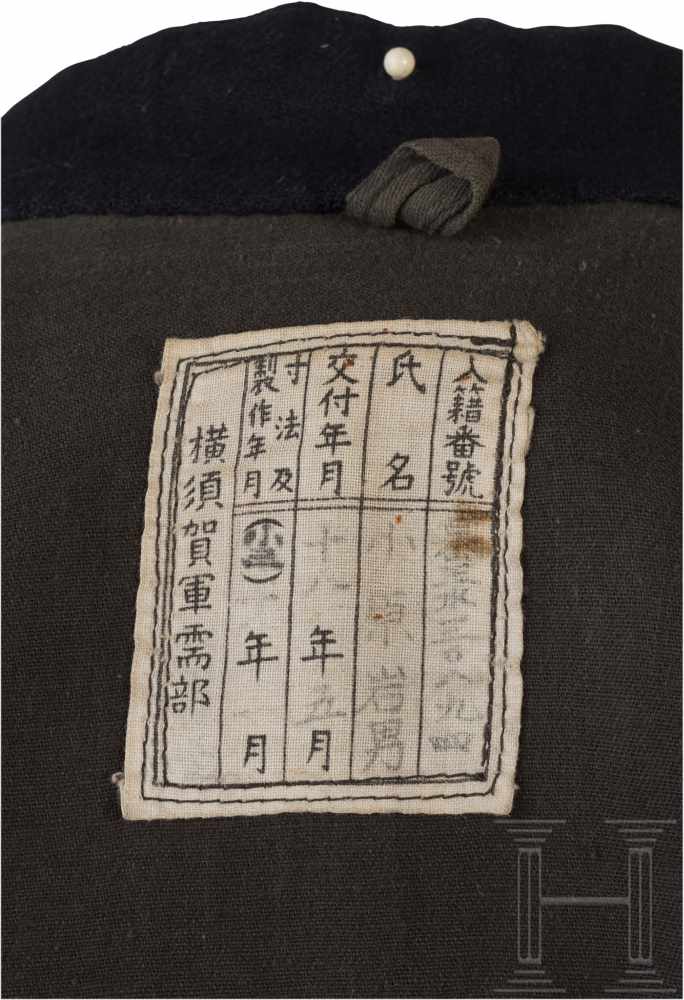 入籍番號 三〇八九四
氏名 小 岩男
交付年月 十八年五月
寸法及製作年月 年 月
横須賀軍需部
H